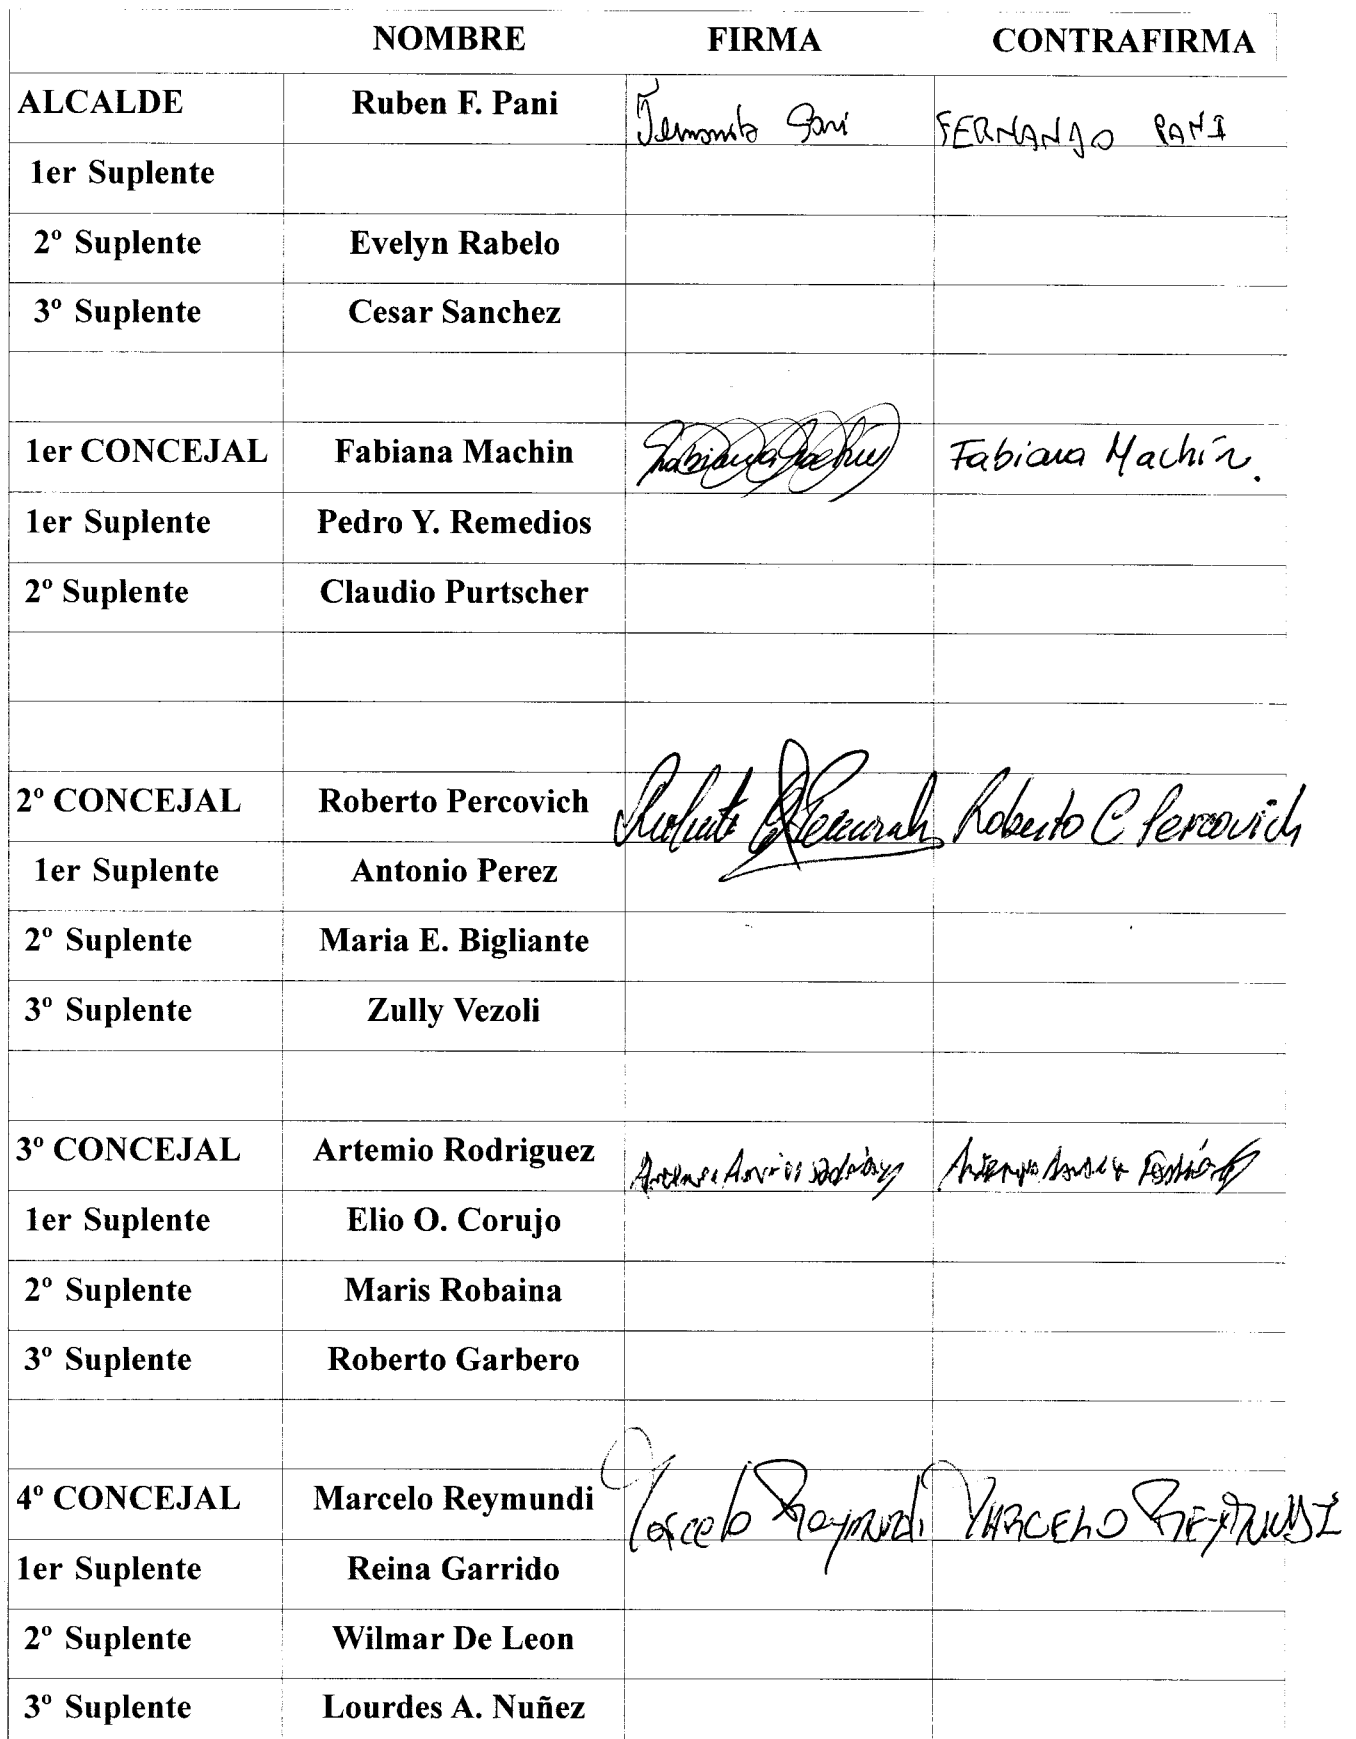 NOMBRE FIRMA CONTRAFIRMA
ALCALDE Ruben F. Pani Fernando Pani FERNANDO PANI
1er Suplente
2º Suplente Evelyn Rabelo
3º Suplente Cesar Sanchez
1er CONCEJAL Fabiana Machin Fabiana Machin Fabiana Machín.
1er Suplente Pedro Y. Remedios
2º Suplente Claudio Purtscher
2º CONCEJAL Roberto Percovich Roberto Roberto C Percovich
1er Suplente Antonio Perez
2º Suplente Maria E. Bigliante
3º Suplente Zully Vezoli
3º CONCEJAL Artemio Rodriguez
1er Suplente Elio O. Corujo
2º Suplente Maris Robaina
3º Suplente Roberto Garbero
4º CONCEJAL Marcelo Reymundi Marcelo Reymundi MARCELO REYMUNDI
1er Suplente Reina Garrido
2º Suplente Wilmar De Leon
3º Suplente Lourdes A. Nuñez